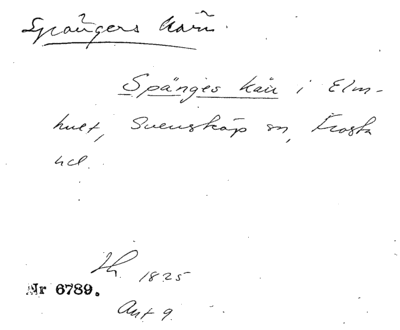 Spångers kärr.
Spänges kärr i Elm-
hult, Svensköp sn, Frosta
hd.
Lh. 1825
Nr 6789.
Ant 9.